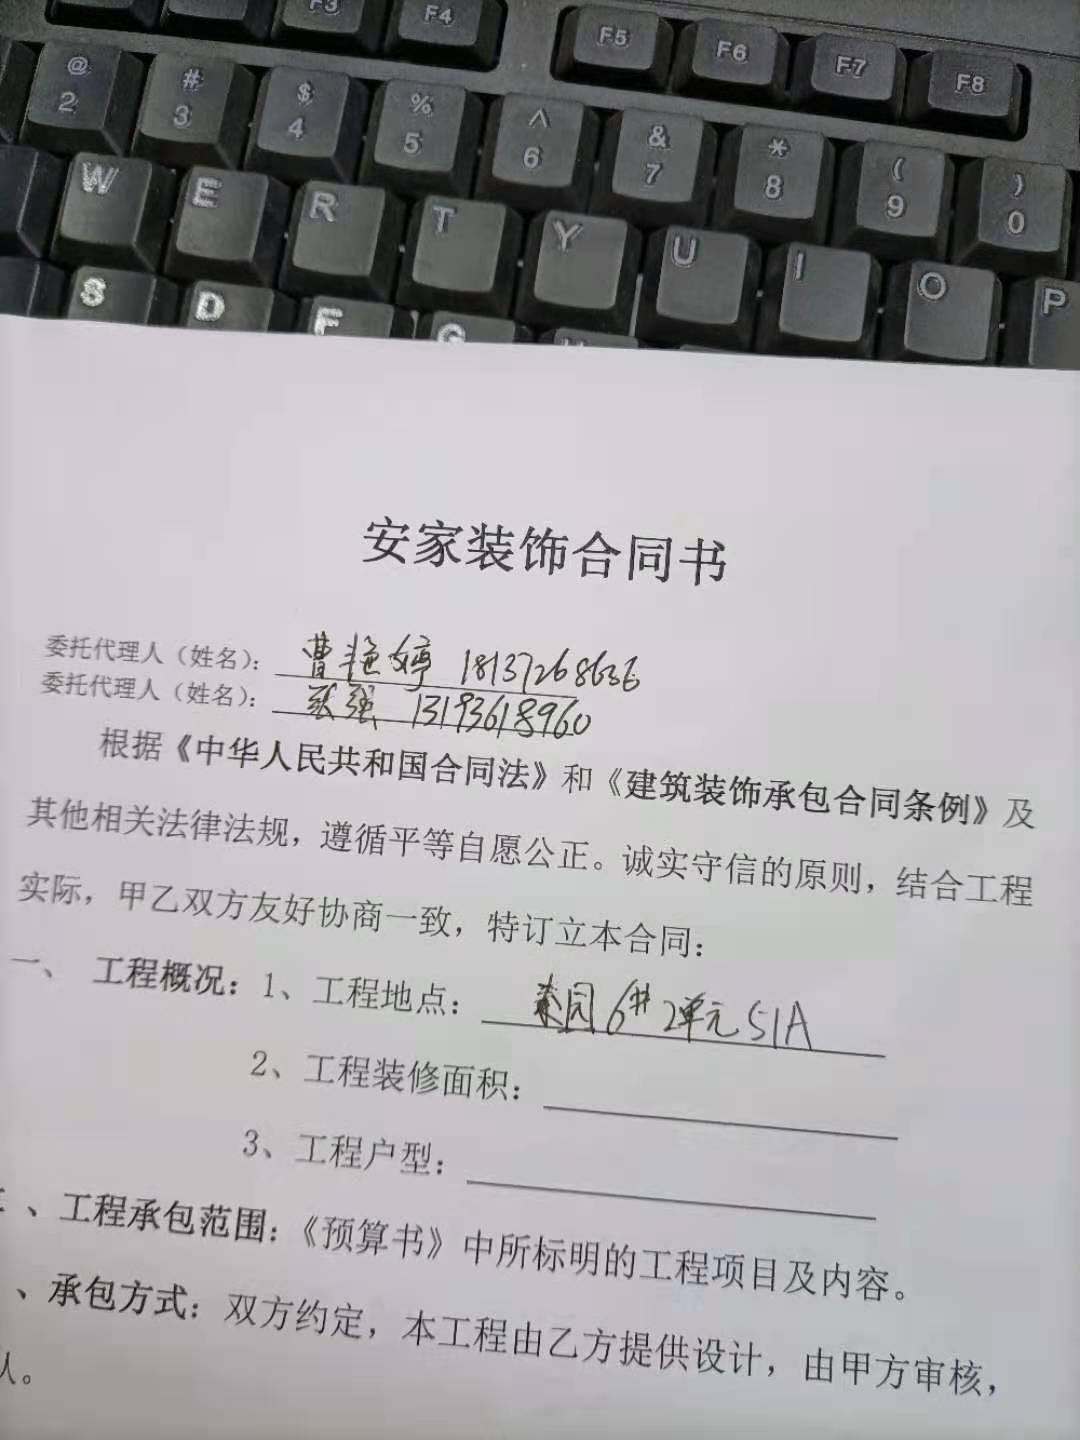 F3 F4 F5 F6 F7 F8
@ # $ % ^ & * ( )
2 3 4 5 6 7 8 9 0
W E R T Y U I O P
S D F G
安家装饰合同书
委托代理人（姓名）： 曹艳婷 18137268636
委托代理人（姓名）： 张强 13193618960
根据《中华人民共和国合同法》和《建筑装饰承包合同条例》及
其他相关法律法规，遵循平等自愿公正。诚实守信的原则，结合工程
实际，甲乙双方友好协商一致，特订立本合同：
一、 工程概况：1、工程地点： 园6# 2单元51A
2、工程装修面积：
3、工程户型：
、工程承包范围：《预算书》中所标明的工程项目及内容。
、承包方式：双方约定，本工程由乙方提供设计，由甲方审核，
人。